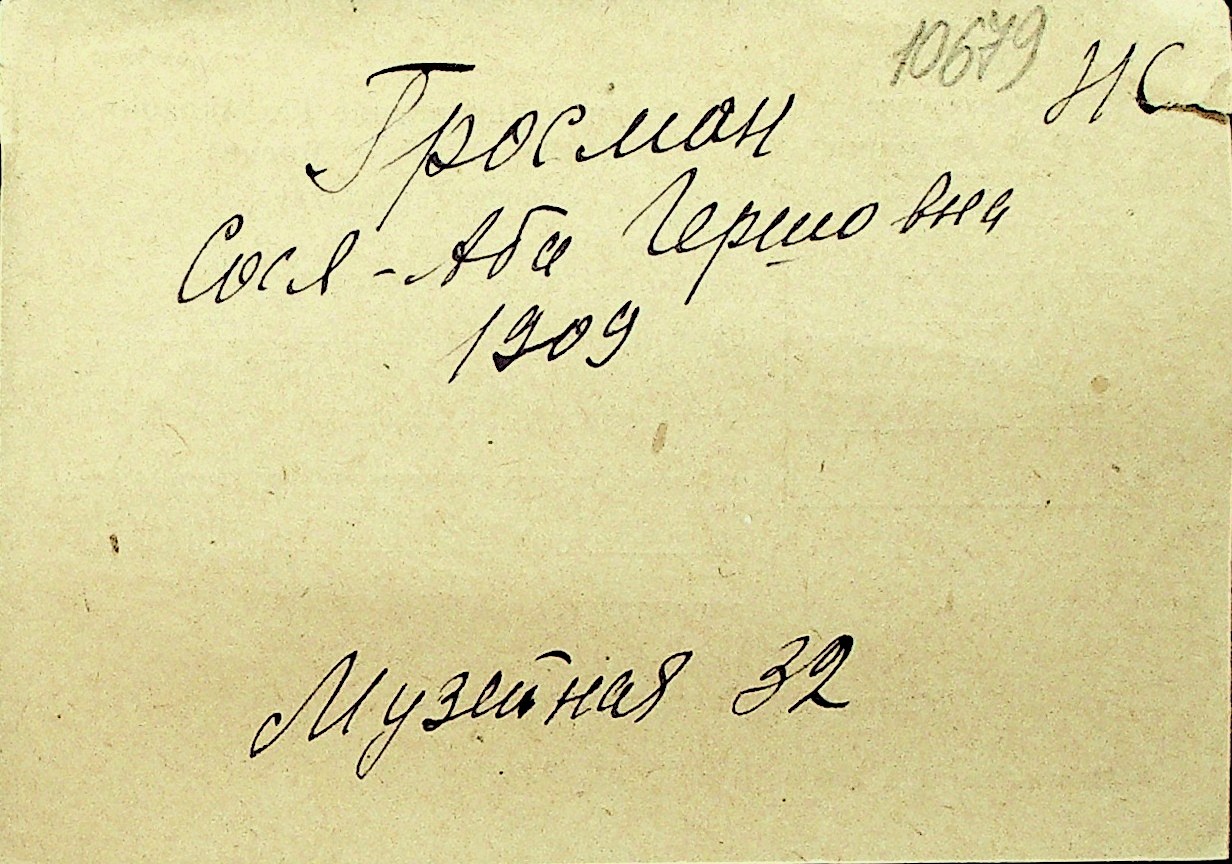 10679 НС
Гросман
Сося-Аба Гершовна
1909
Музейная 32